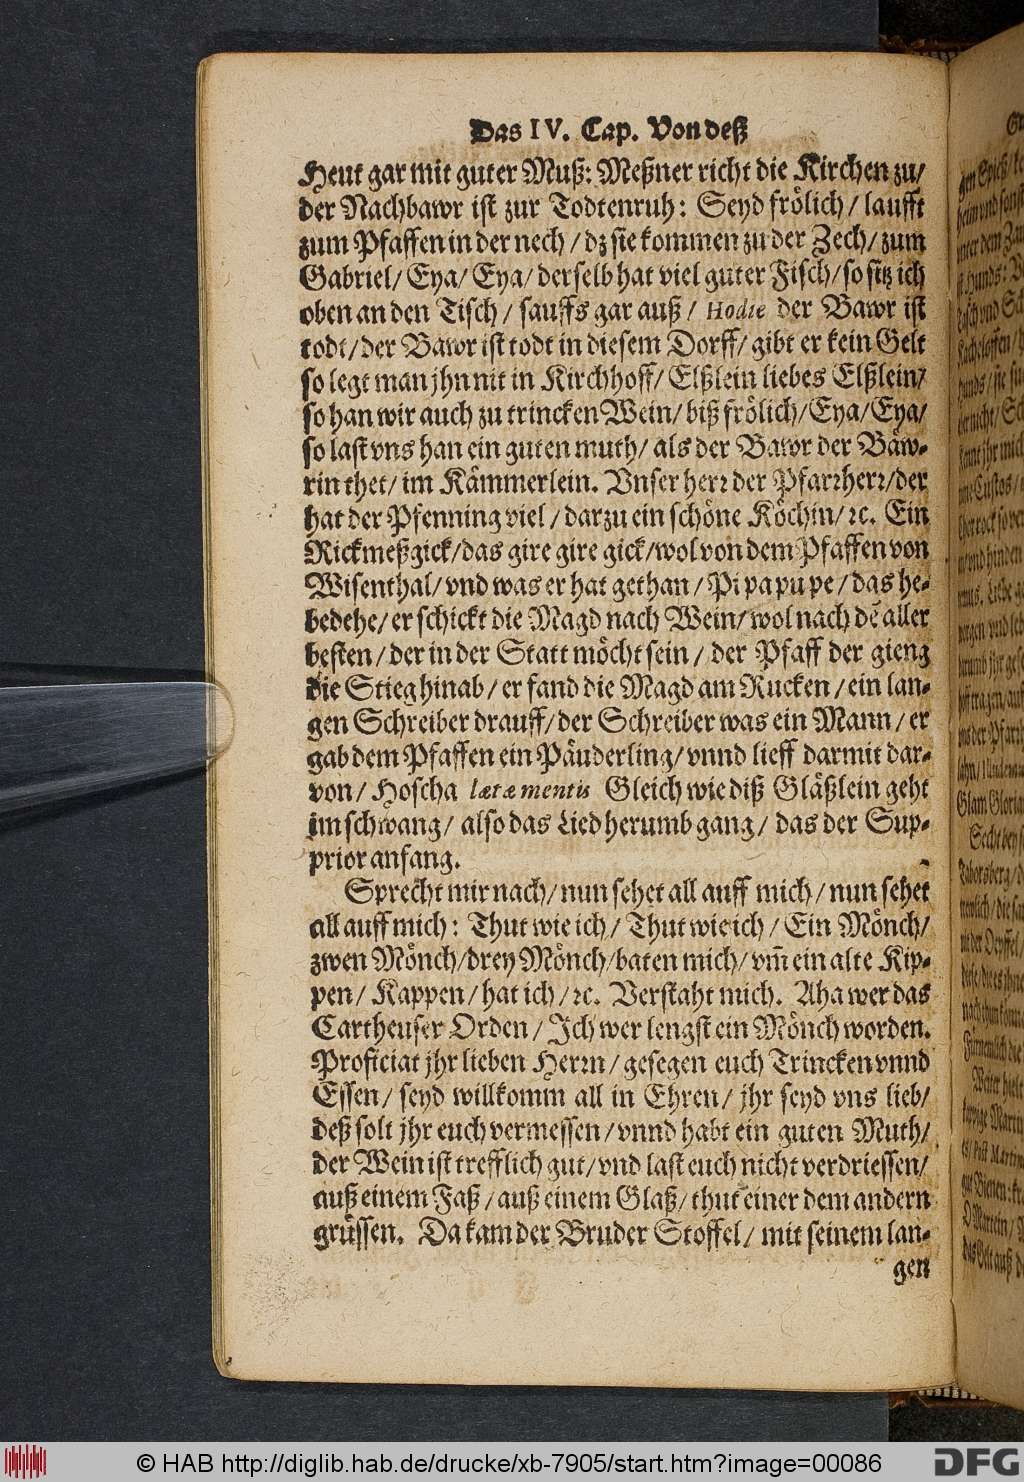 Das IV. Cap. Von deß
Heut gar mit guter Muß: Meßner richt die Kirchen zu/
der Nachbawr ist zur Todtenruh: Seyd frölich / laufft
zum Pfaffen in der nech / dz sie kommen zu der Zech/ zum
Gabriel/ Eya/ Eya/ derselb hat viel guter Fisch/ so sitz ich
oben an den Tisch / sauffs gar auß / Hodie der Bawr ist
todt/ der Bawr ist todt in diesem Dorff/ gibt er kein Gelt
so legt man jhn nit in Kirchhoff/ Elßlein liebes Elßlein/
so han wir auch zu trincken Wein/ biß frölich/ Eya/ Eya/
so last vns han ein guten muth/ als der Bawr der Bäw-
rin thet/ im Kämmerlein. Vnser herꝛ der Pfarꝛherꝛ/ der
hat der Pfenning viel / darzu ein schöne Köchin/ ꝛc. Ein
Rickmeßgick/ das gire gire gick/ wol von dem Pfaffen von
Wisenthal/ vnd was er hat gethan / Pi pa pu pe / das he-
bedehe/ er schickt die Magd nach Wein/ wol nach dẽ aller
besten / der in der Statt möcht sein / der Pfaff der gieng
die Stieg hinab/ er fand die Magd am Rucken / ein lan-
gen Schreiber drauff/ der Schreiber was ein Mann / er
gab dem Pfaffen ein Päuderling/ vnnd lieff darmit dar-
von/ Hoscha lætæ mentis Gleich wie diß Gläßlein geht
im schwang/ also das Lied herumb gang/ das der Sup-
prior anfang.
Sprecht mir nach/ nun sehet all auff mich / nun sehet
all auff mich : Thut wie ich / Thut wie ich / Ein Mönch/
zwen Mönch/ drey Mönch/ baten mich/ vm̃ ein alte Kip-
pen/ Kappen/ hat ich / ꝛc. Verstaht mich. Aha wer das
Cartheuser Orden / Jch wer lengst ein Mönch worden.
Proficiat jhr lieben Herꝛn / gesegen euch Trincken vnnd
Essen/ seyd willkomm all in Ehren/ jhr seyd vns lieb/
deß solt jhr euch vermessen / vnnd habt ein guten Muth/
der Wein ist trefflich gut/ vnd last euch nicht verdriessen/
auß einem Faß / auß einem Glaß/ thut einer dem andern
grüssen. Da kam der Bruder Stoffel/ mit seinem lan-
gen
© HAB http://diglib.hab.de/drucke/xb-7905/start.htm?image=00086
DFG